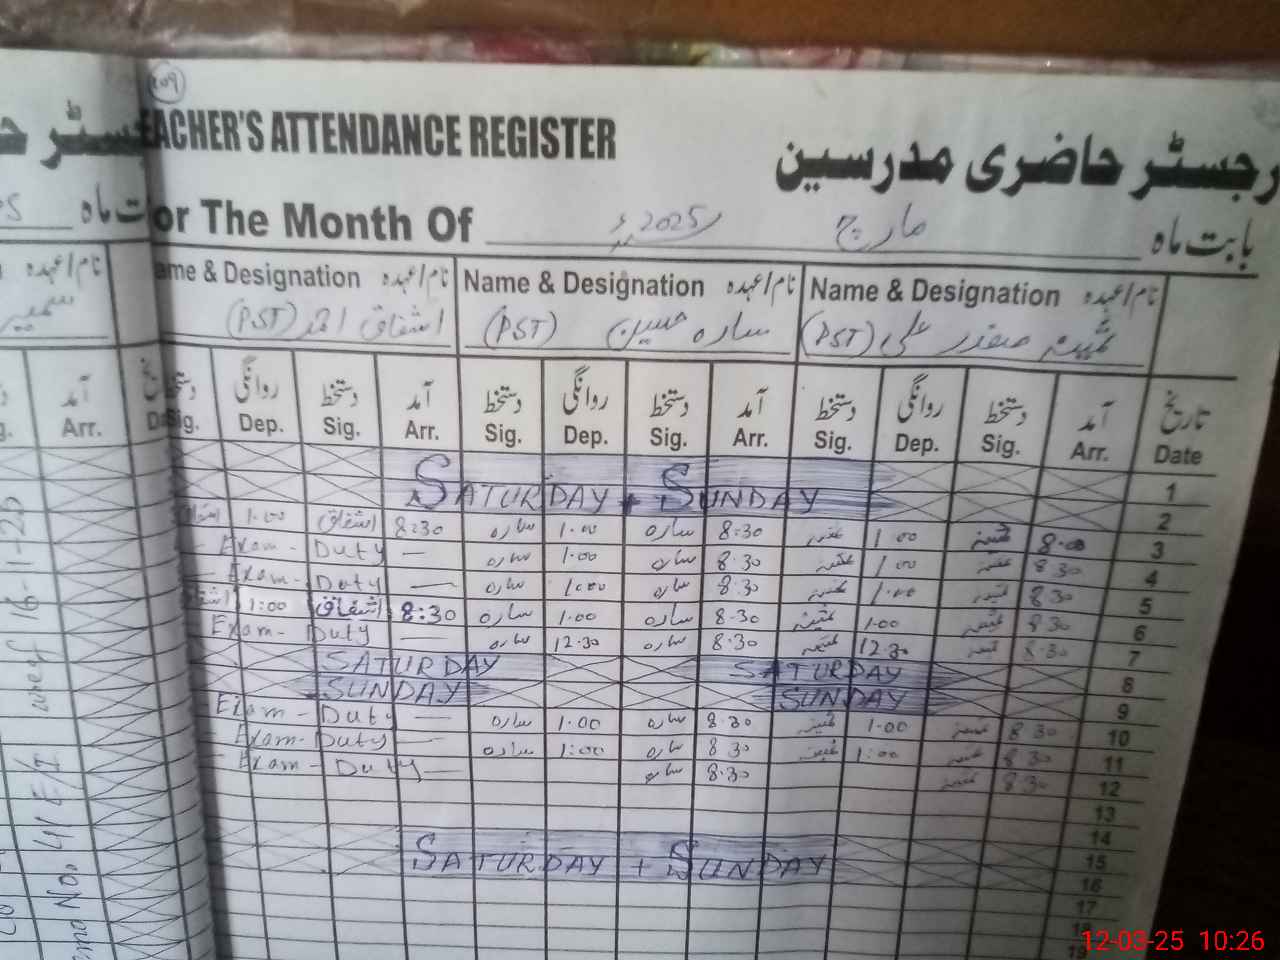 409
TEACHER'S ATTENDANCE REGISTER رجسٹر حاضری مدرسین
For The Month Of مارچ 2025ء بابت ماہ
Name & Designation نام/عہدہ Name & Designation نام/عہدہ Name & Designation نام/عہدہ
اشفاق احمد (PST) سارہ حسین (PST) صفدر علی (PST)
دستخط روانگی دستخط آمد دستخط روانگی دستخط آمد دستخط روانگی دستخط آمد تاریخ
Arr. Sig. Dep. Sig. Arr. Sig. Dep. Sig. Arr. Sig. Dep. Sig. Arr. Date
SATURDAY + SUNDAY 1
2
1.00 اشفاق 8:30 سارہ 1.00 سارہ 8:30 1.00 8.00 3
Exam - Duty — سارہ 1.00 سارہ 8.30 1.00 8.30 4
Exam - Duty — سارہ 1.00 سارہ 8.30 1.00 8.30 5
1:00 اشفاق 8:30 سارہ 1.00 سارہ 8.30 1.00 8.30 6
Exam - Duty — سارہ 12.30 سارہ 8.30 12.30 8.30 7
SATURDAY SATURDAY 8
SUNDAY SUNDAY 9
Exam - Duty — سارہ 1.00 سارہ 8.30 1.00 8.30 10
Exam - Duty — سارہ 1:00 سارہ 8.30 1:00 8.30 11
Exam - Duty — سارہ 8.30 8.30 12
13
14
SATURDAY + SUNDAY 15
16
17
18
19
wef 16-1-25
No. 411 E/I
12-03-25 10:26